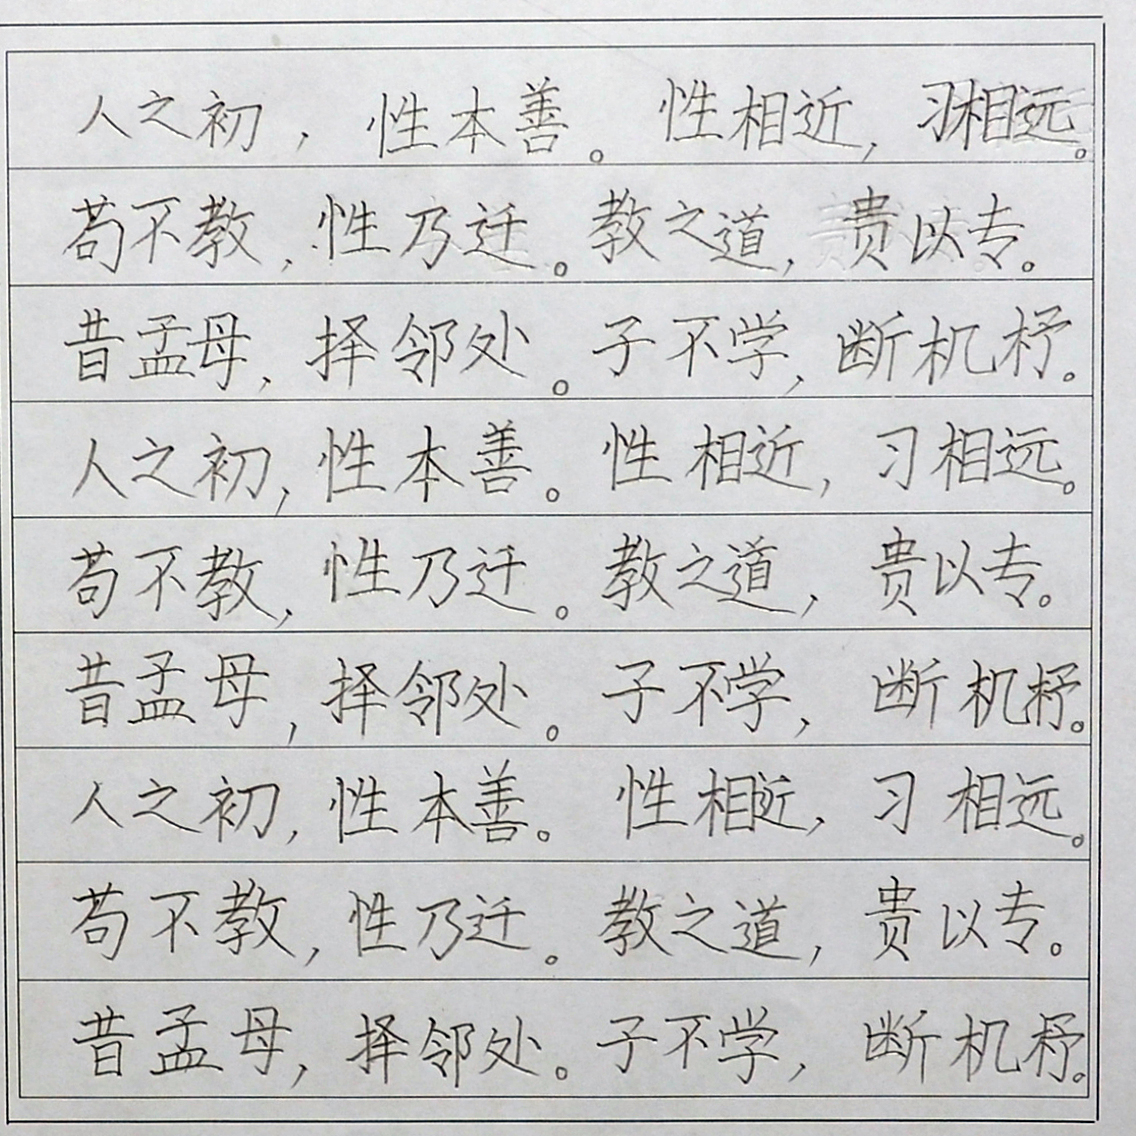 人之初，性本善。性相近，习相远。
苟不教，性乃迁。教之道，贵以专。
昔孟母，择邻处。子不学，断机杼。
人之初，性本善。性相近，习相远。
苟不教，性乃迁。教之道，贵以专。
昔孟母，择邻处。子不学，断机杼。
人之初，性本善。性相近，习相远。
苟不教，性乃迁。教之道，贵以专。
昔孟母，择邻处。子不学，断机杼。